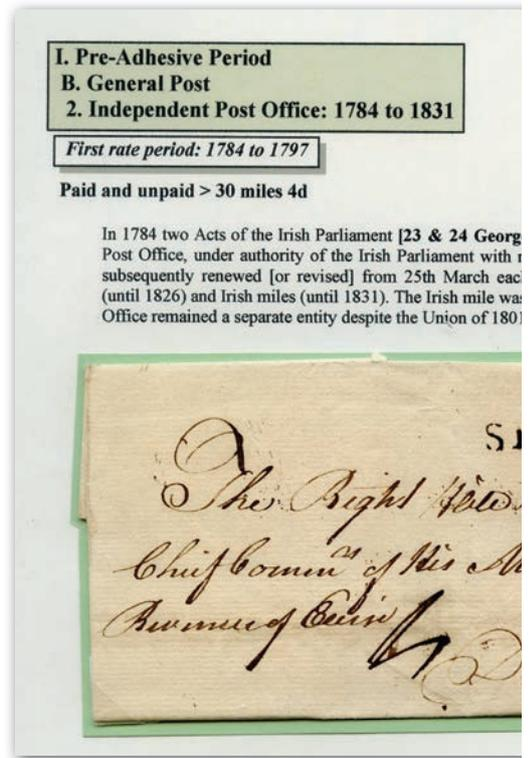 I. Pre-Adhesive Period
B. General Post
2. Independent Post Office: 1784 to 1831
First rate period: 1784 to 1797
Paid and unpaid > 30 miles 4d
In 1784 two Acts of the Irish Parliament [23 & 24 Georg
Post Office, under authority of the Irish Parliament with
subsequently renewed [or revised] from 25th March eac
(until 1826) and Irish miles (until 1831). The Irish mile was
Office remained a separate entity despite the Union of 1801
The Right
Chief Commrs of His
Revenue of
4